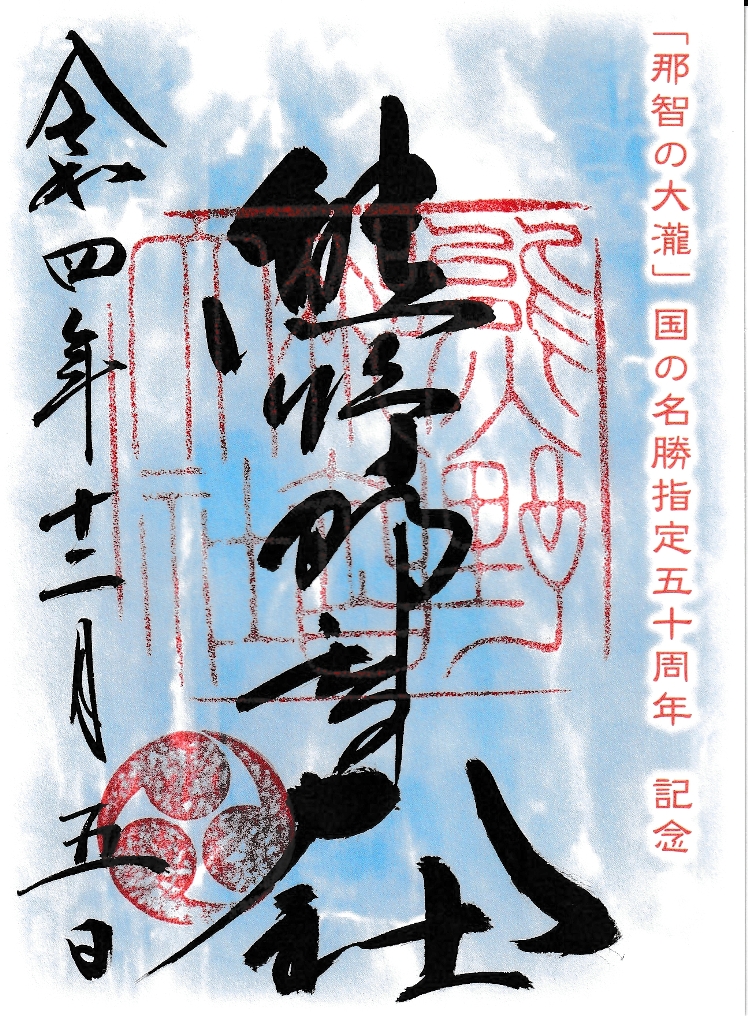 「那智の大瀧」国の名勝指定五十周年 記念
熊野那智大社
令和四年十二月五日